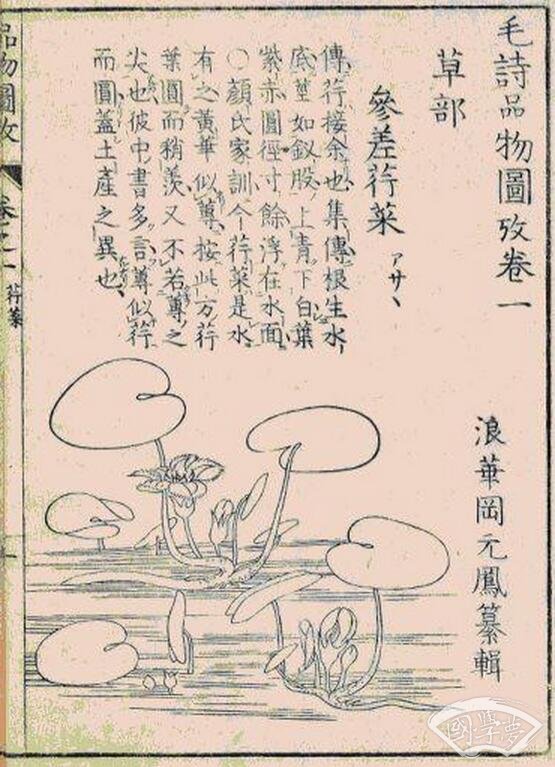 毛詩品物圖攷卷一
浪華岡元鳳纂輯
草部
參差荇菜 アサヽ
傳荇接余也集傳根生水
底莖如釵股上青下白葉
紫赤圓徑寸餘浮在水面
○顏氏家訓今荇菜是水
有之黃華似蓴按此方荇
葉圓而稍羨又不若蓴之
尖也彼中書多言蓴似荇
而圓蓋土產之異也
品物圖攷 卷之一 荇菜
國學夢